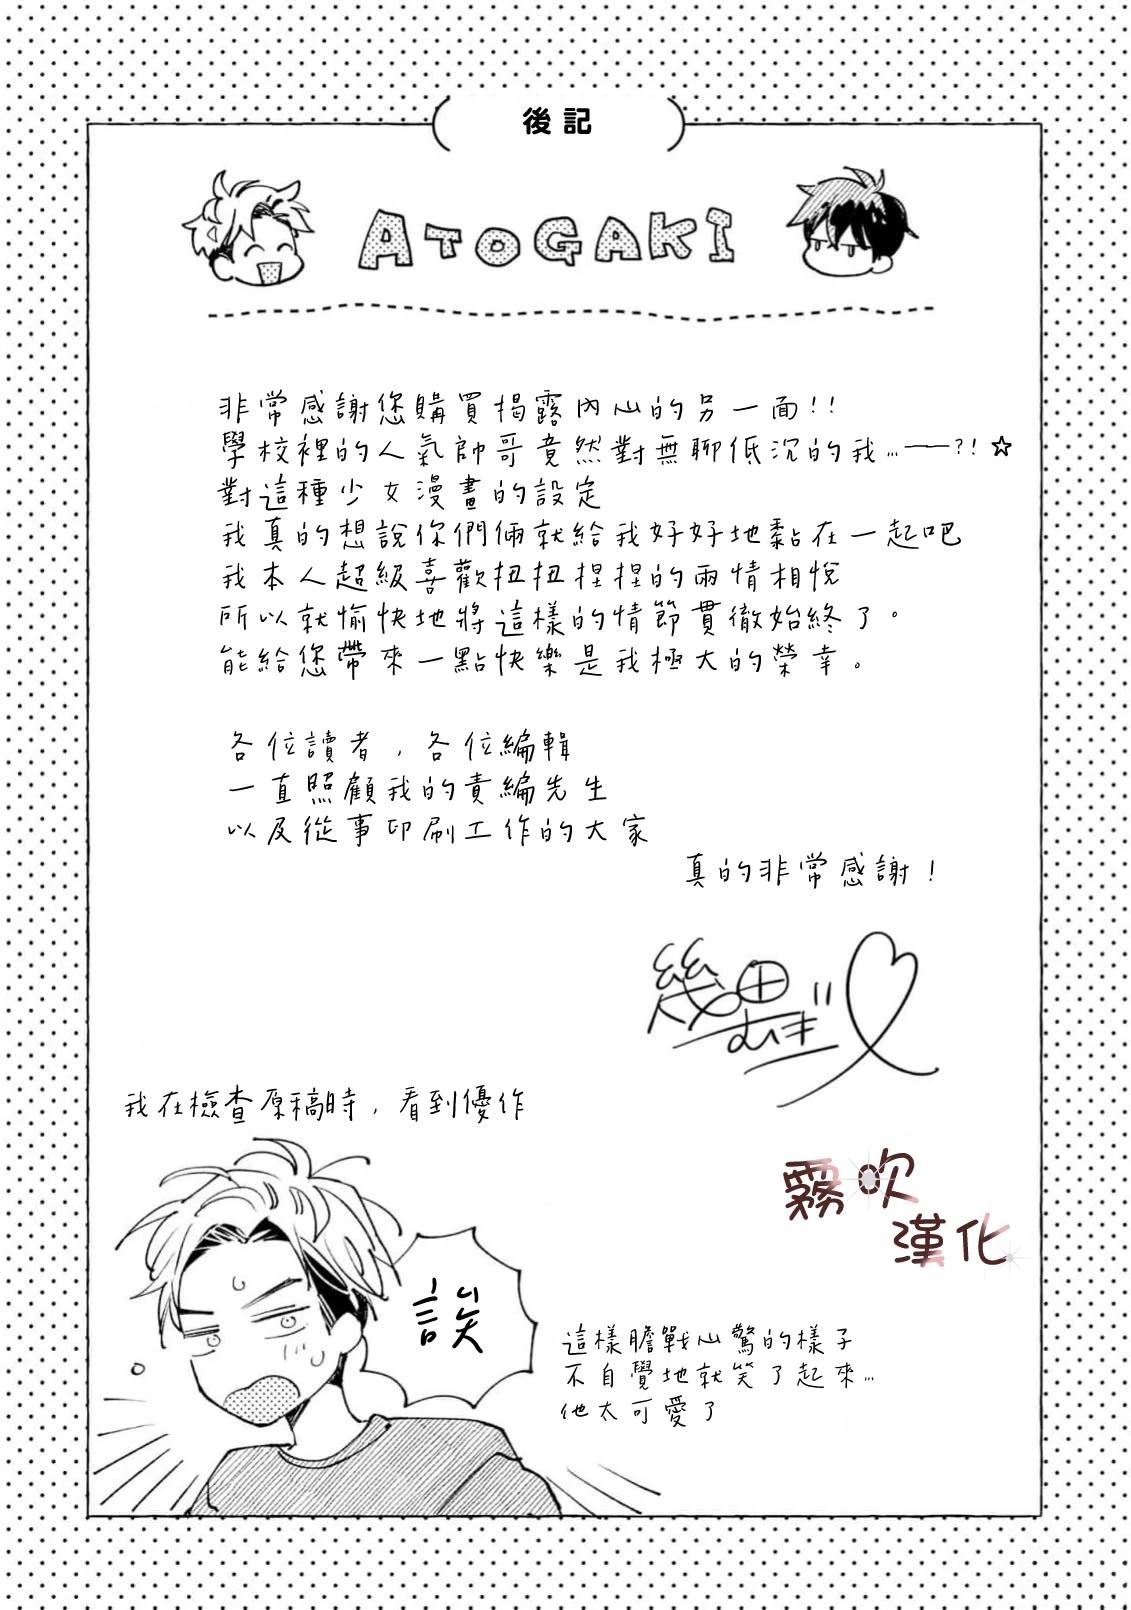 後記
ATOGAKI
非常感謝您購買揭露內心的另一面!!
學校裡的人氣帥哥竟然對無聊低沉的我…——?!☆
對這種少女漫畫的設定
我真的想說你們倆就給我好好地黏在一起吧
我本人超級喜歡扭扭捏捏的兩情相悅
所以就愉快地將這樣的情節貫徹始終了。
能給您帶來一點快樂是我極大的榮幸。
各位讀者，各位編輯
一直照顧我的責編先生
以及從事印刷工作的大家
真的非常感謝！
我在檢查原稿時，看到優作
霧吹
漢化
誒
這樣膽戰心驚的樣子
不自覺地就笑了起來…
他太可愛了